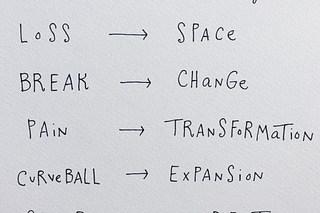 LoSS → SPACe
BREAK → CHanGe
PAiN → TRANSFoRMaTioN
CuRveBALL → ExPANSioN